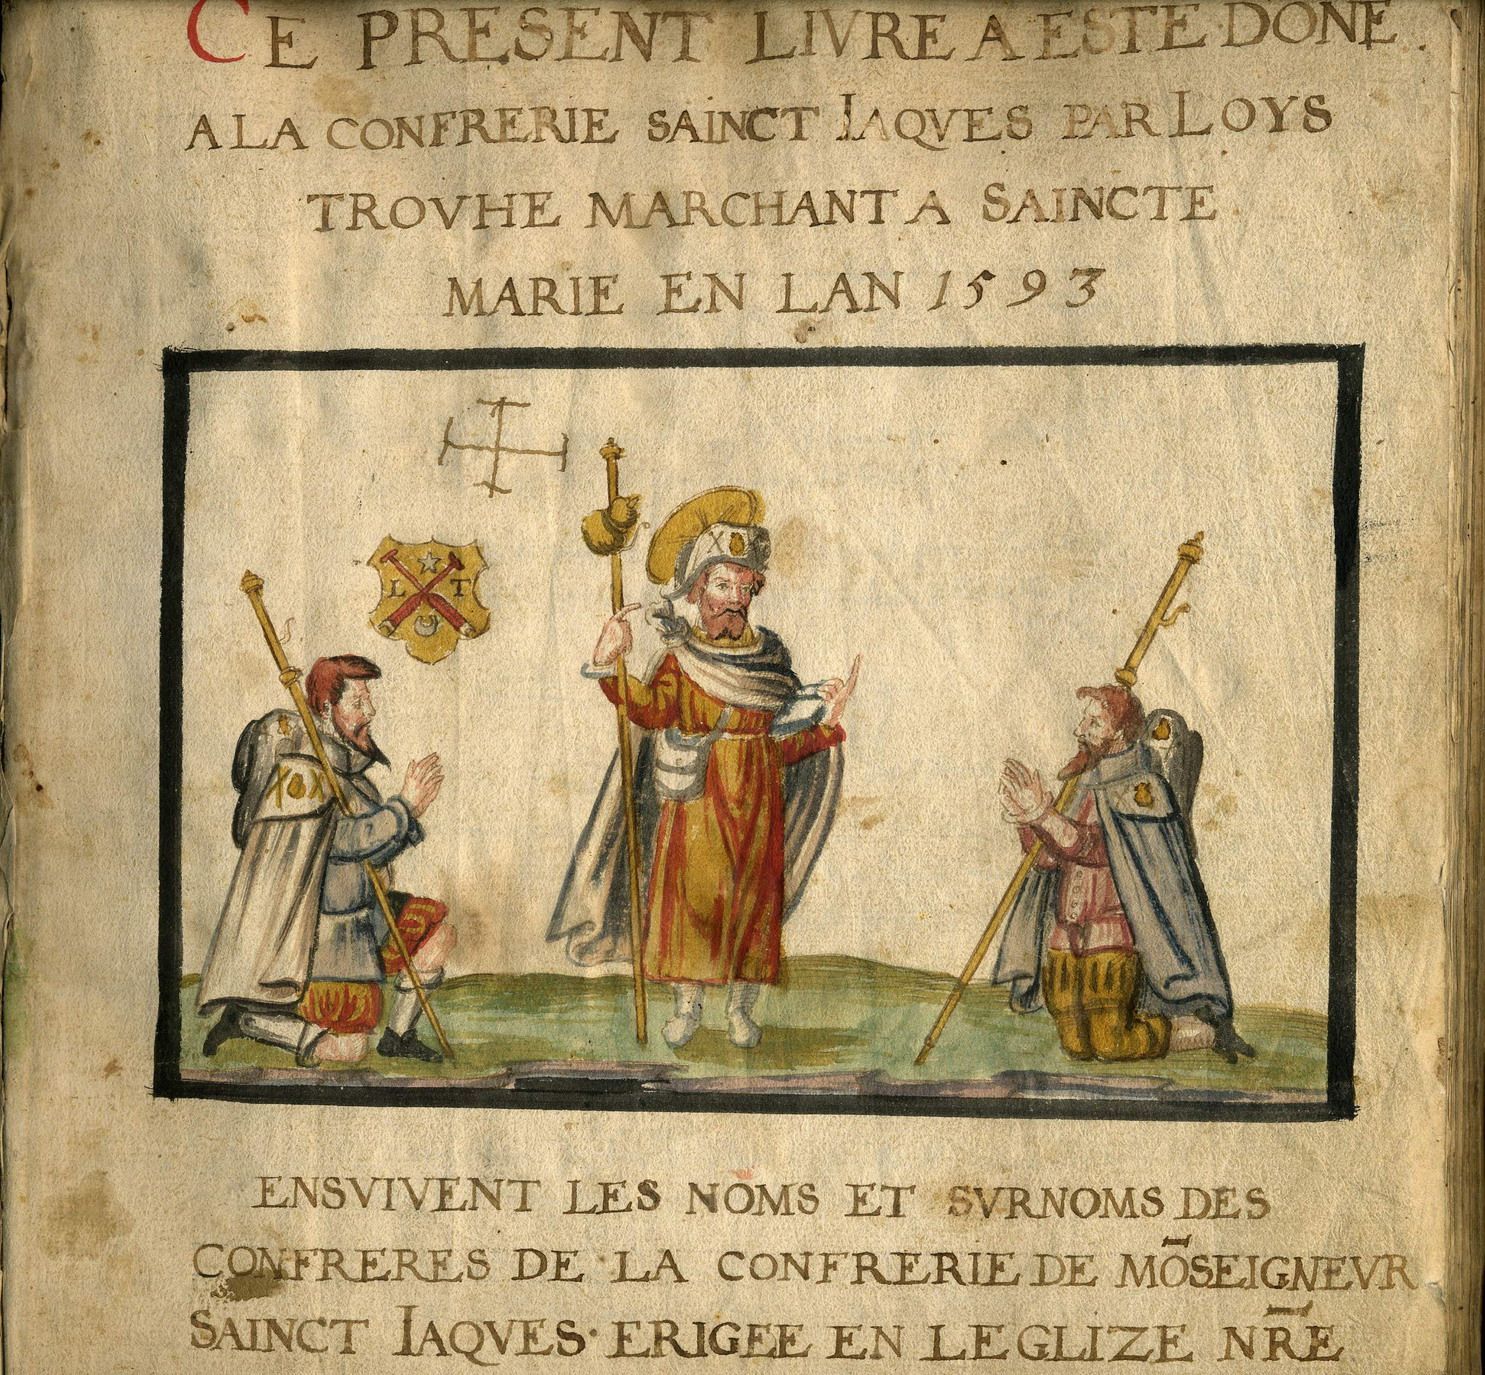 CE PRESENT LIVRE A ESTE DONE
A LA CONFRERIE SAINCT IAQVES PAR LOYS
TROVHE MARCHANT A SAINCTE
MARIE EN LAN 1593
L T
ENSVIVENT LES NOMS ET SVRNOMS DES
CONFRERES DE LA CONFRERIE DE MŌSEIGNEVR
SAINCT IAQVES · ERIGEE EN LEGLIZE NR̄E